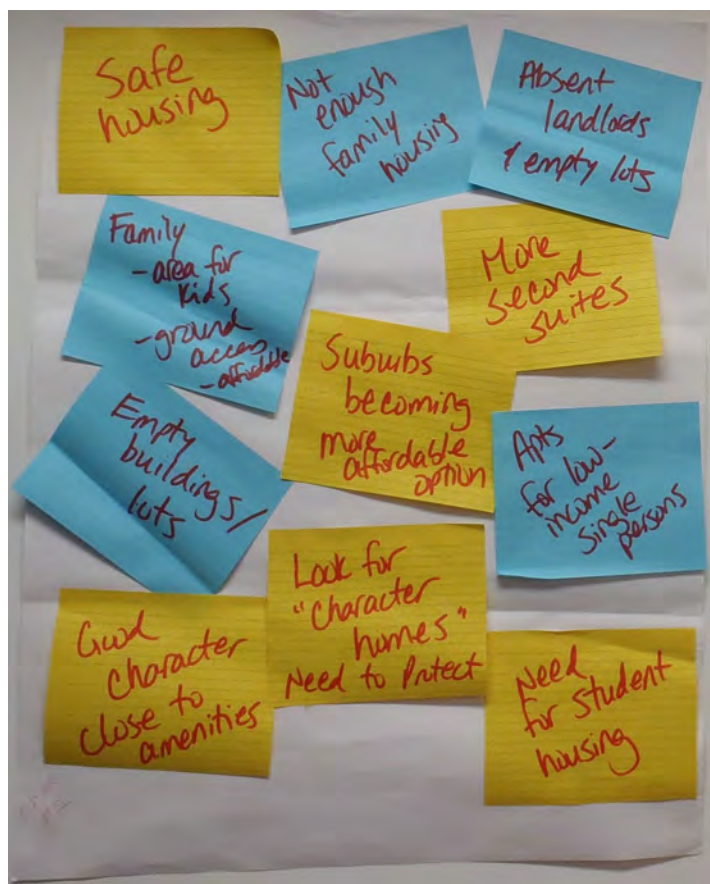 Safe
housing
Not
enough
family
housing
Absent
landlords
& empty lots
Family
- area for
kids
- ground
access
- affordable
More
second
suites
Suburbs
becoming
more
affordable
option
Empty
buildings/
lots
Apts
for low-
income
single
persons
Look for
"Character
homes"
Need to Protect
Good
character
close to
amenities
Need
for student
housing